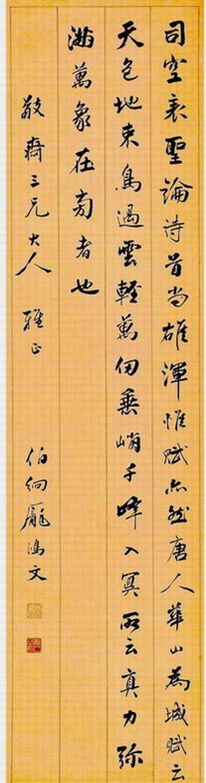 司空表聖論诗首尚雄渾惟賦亦然唐人華山為城賦云
天包地束鳥過雲輕萬仞垂峭千峰入冥所云真力弥
滿萬象在旁者也
敬齋三兄大人 雅正
伯絅龎鴻文